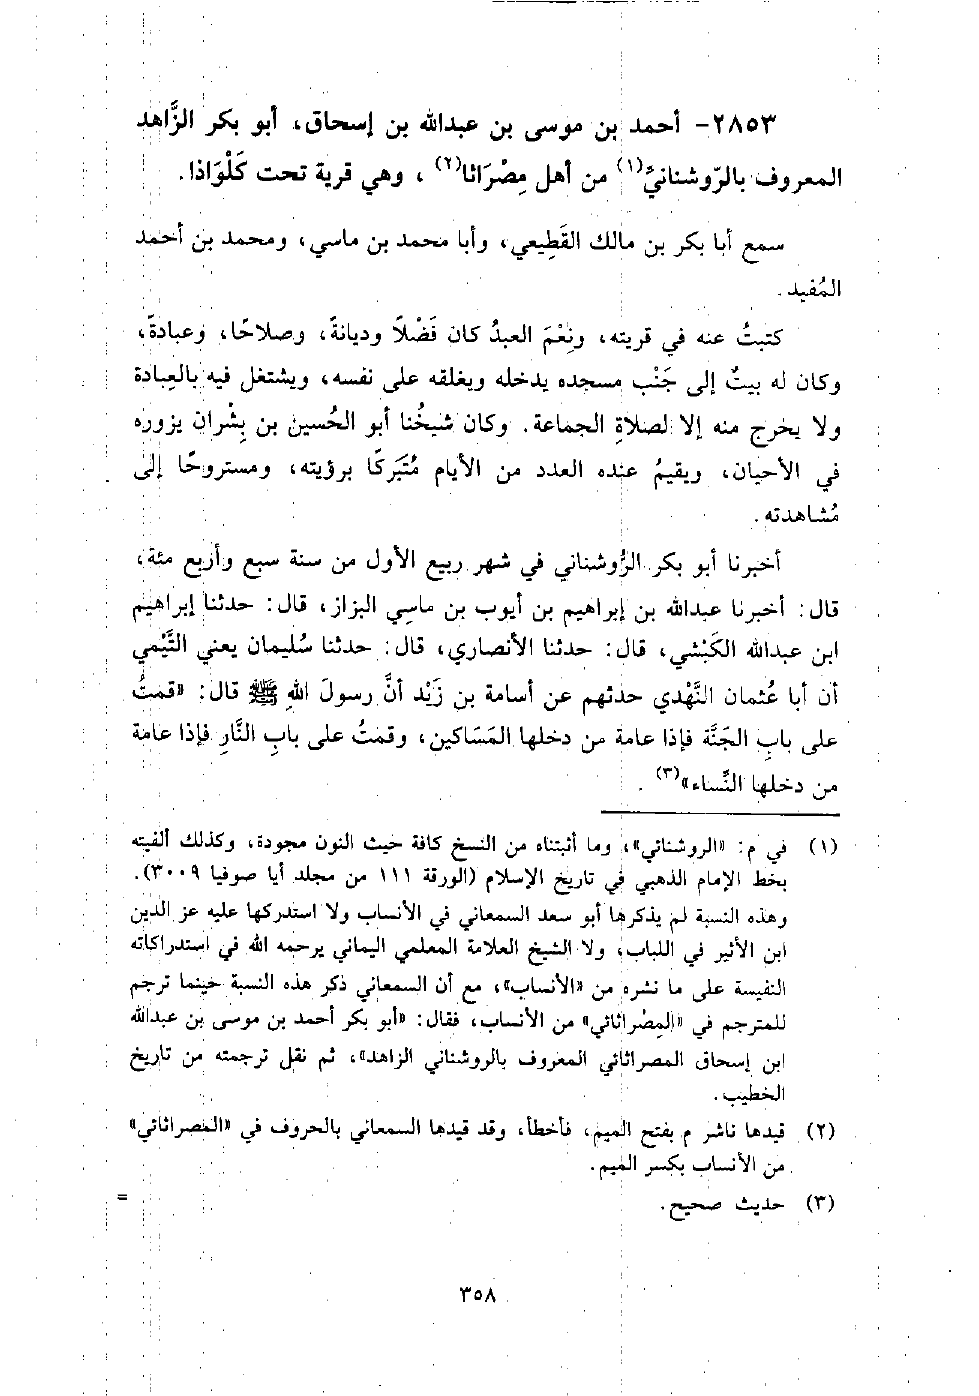 ٢٨٥٣- أحمد بن موسى بن عبدالله بن إسحاق، أبو بكر الزَّاهد
المعروف بالرّوشنانيّ(١) من أهل مِصْرَاثا(٢)، وهي قرية تحت كَلْوَاذا.
سمع أبا بكر بن مالك القَطِيعي، وأبا محمد بن ماسي، ومحمد بن أحمد
المُفيد.
كتبتُ عنه في قريته، ونِعْمَ العبدُ كان فَضْلًا وديانةً، وصلاحًا، وعبادةً،
وكان له بيتٌ إلى جَنْب مسجده يدخله ويغلقه على نفسه، ويشتغل فيه بالعِبادة
ولا يخرج منه إلا لصلاةِ الجماعة. وكان شيخُنا أبو الحُسين بن بِشْران يزوره
في الأحيان، ويقيمُ عنده العدد من الأيام مُتَبَركًا برؤيته، ومستروحًا إلى
مُشاهدته.
أخبرنا أبو بكر الرُّوشناني في شهر ربيع الأول من سنة سبع وأربع مئة،
قال: أخبرنا عبدالله بن إبراهيم بن أيوب بن ماسِي البزاز، قال: حدثنا إبراهيم
ابن عبدالله الكَبْشي، قال: حدثنا الأنصاري، قال: حدثنا سُليمان يعني التَّيْمي
أن أبا عُثمان النَّهْدي حدثهم عن أسامة بن زَيْد أنَّ رسولَ اللهِ ﷺ قال: «قمتُ
على بابِ الجَنَّة فإذا عامة من دخلها المَسَاكين، وقمتُ على بابِ النَّارِ فإذا عامة
من دخلها النِّساء»(٣).
(١) في م: «الروشنائي»، وما أثبتناه من النسخ كافة حيث النون مجودة، وكذلك ألفيته
بخط الإمام الذهبي في تاريخ الإسلام (الورقة ١١١ من مجلد أيا صوفيا ٣٠٠٩).
وهذه النسبة لم يذكرها أبو سعد السمعاني في الأنساب ولا استدركها عليه عز الدين
ابن الأثير في اللباب، ولا الشيخ العلامة المعلمي اليماني يرحمه الله في استدراكاته
النفيسة على ما نشره من «الأنساب»، مع أن السمعاني ذكر هذه النسبة حينما ترجم
للمترجم في «المِصْراثائي» من الأنساب، فقال: «أبو بكر أحمد بن موسى بن عبدالله
ابن إسحاق المصراثائي المعروف بالروشناني الزاهد»، ثم نقل ترجمته من تاريخ
الخطيب.
(٢) قيدها ناشر م بفتح الميم، فأخطأ، وقد قيدها السمعاني بالحروف في «المصراثائي»
من الأنساب بكسر الميم.
(٣) حديث صحيح. =
٣٥٨